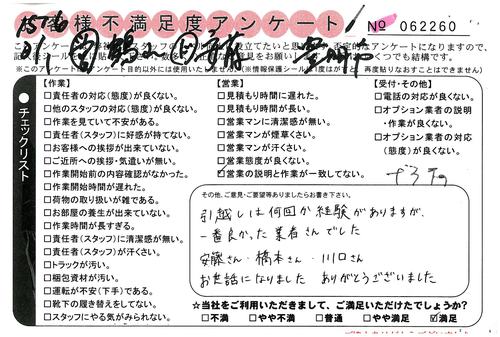 お客様不満足度アンケート
No 062260
※このアンケートは
【作業】
□責任者の対応(態度)が良くない。
□他のスタッフの対応(態度)が良くない。
□作業を見ていて不安がある。
□責任者(スタッフ)に好感が持てない。
□お客様への挨拶が出来ていない。
□ご近所への挨拶・気遣いが無い。
□作業開始前の内容確認がなかった。
□作業開始時間が遅れた。
□荷物の取り扱いが雑である。
□お部屋の養生が出来ていない。
□作業時間が長すぎる。
□責任者(スタッフ)に清潔感が無い。
□責任者(スタッフ)が汗くさい。
□トラックが汚い。
□梱包資材が汚い。
□運転が不安(下手)である。
□靴下の履き替えをしてない。
□スタッフにやる気がみられない。
【営業】
□見積もり時間に遅れた。
□見積もり時間が長い。
□営業マンに清潔感が無い。
□営業マンが煙草くさい。
□営業マンが汗くさい。
□営業態度が良くない。
□営業の説明と作業が一致してない。
【受付・その他】
□電話の対応が良くない。
□オプション業者の説明・作業が良くない。
□オプション業者の対応(態度)が良くない。
●チェックリスト
その他、ご意見・ご要望等ありましたらお書き下さい。
引越しは何回か経験がありますが、
一番良かった業者さんでした
安藤さん・橋本さん・川口さん
お世話になりました ありがとうございました
☆当社をご利用いただきまして、ご満足いただけたでしょうか?
□不満 □やや不満 □普通 □やや満足 ☑満足